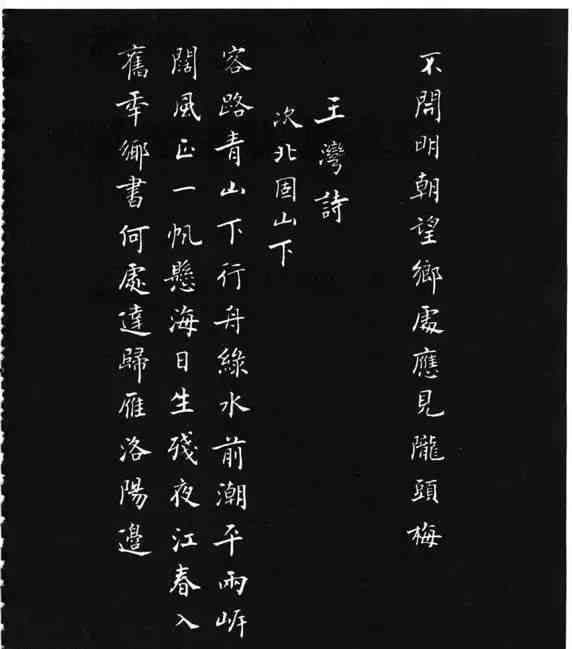 不開明朝望鄉處應見隴頭梅
王灣詩
次北固山下
客路青山下行舟綠水前潮平兩岸
闊風正一帆懸海日生殘夜江春入
舊年鄉書何處達歸雁洛陽邊